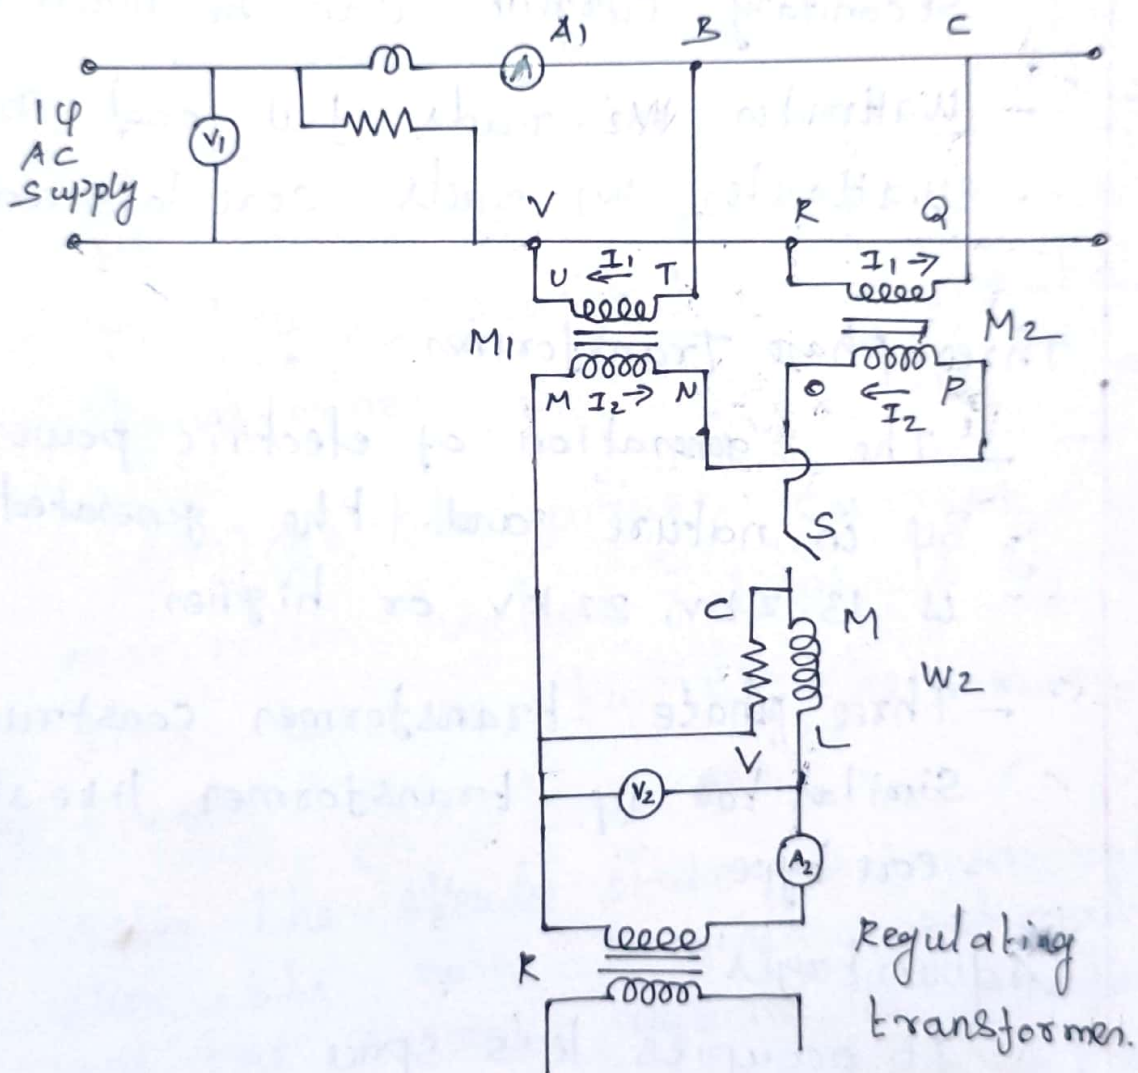 A1 B C
A
1φ
AC
Supply
V1
V R Q
U I1 T I1
M1 M2
M I2 N O I2 P
S
C M
W2
V L
V2
A2
R
Regulating
transformer.